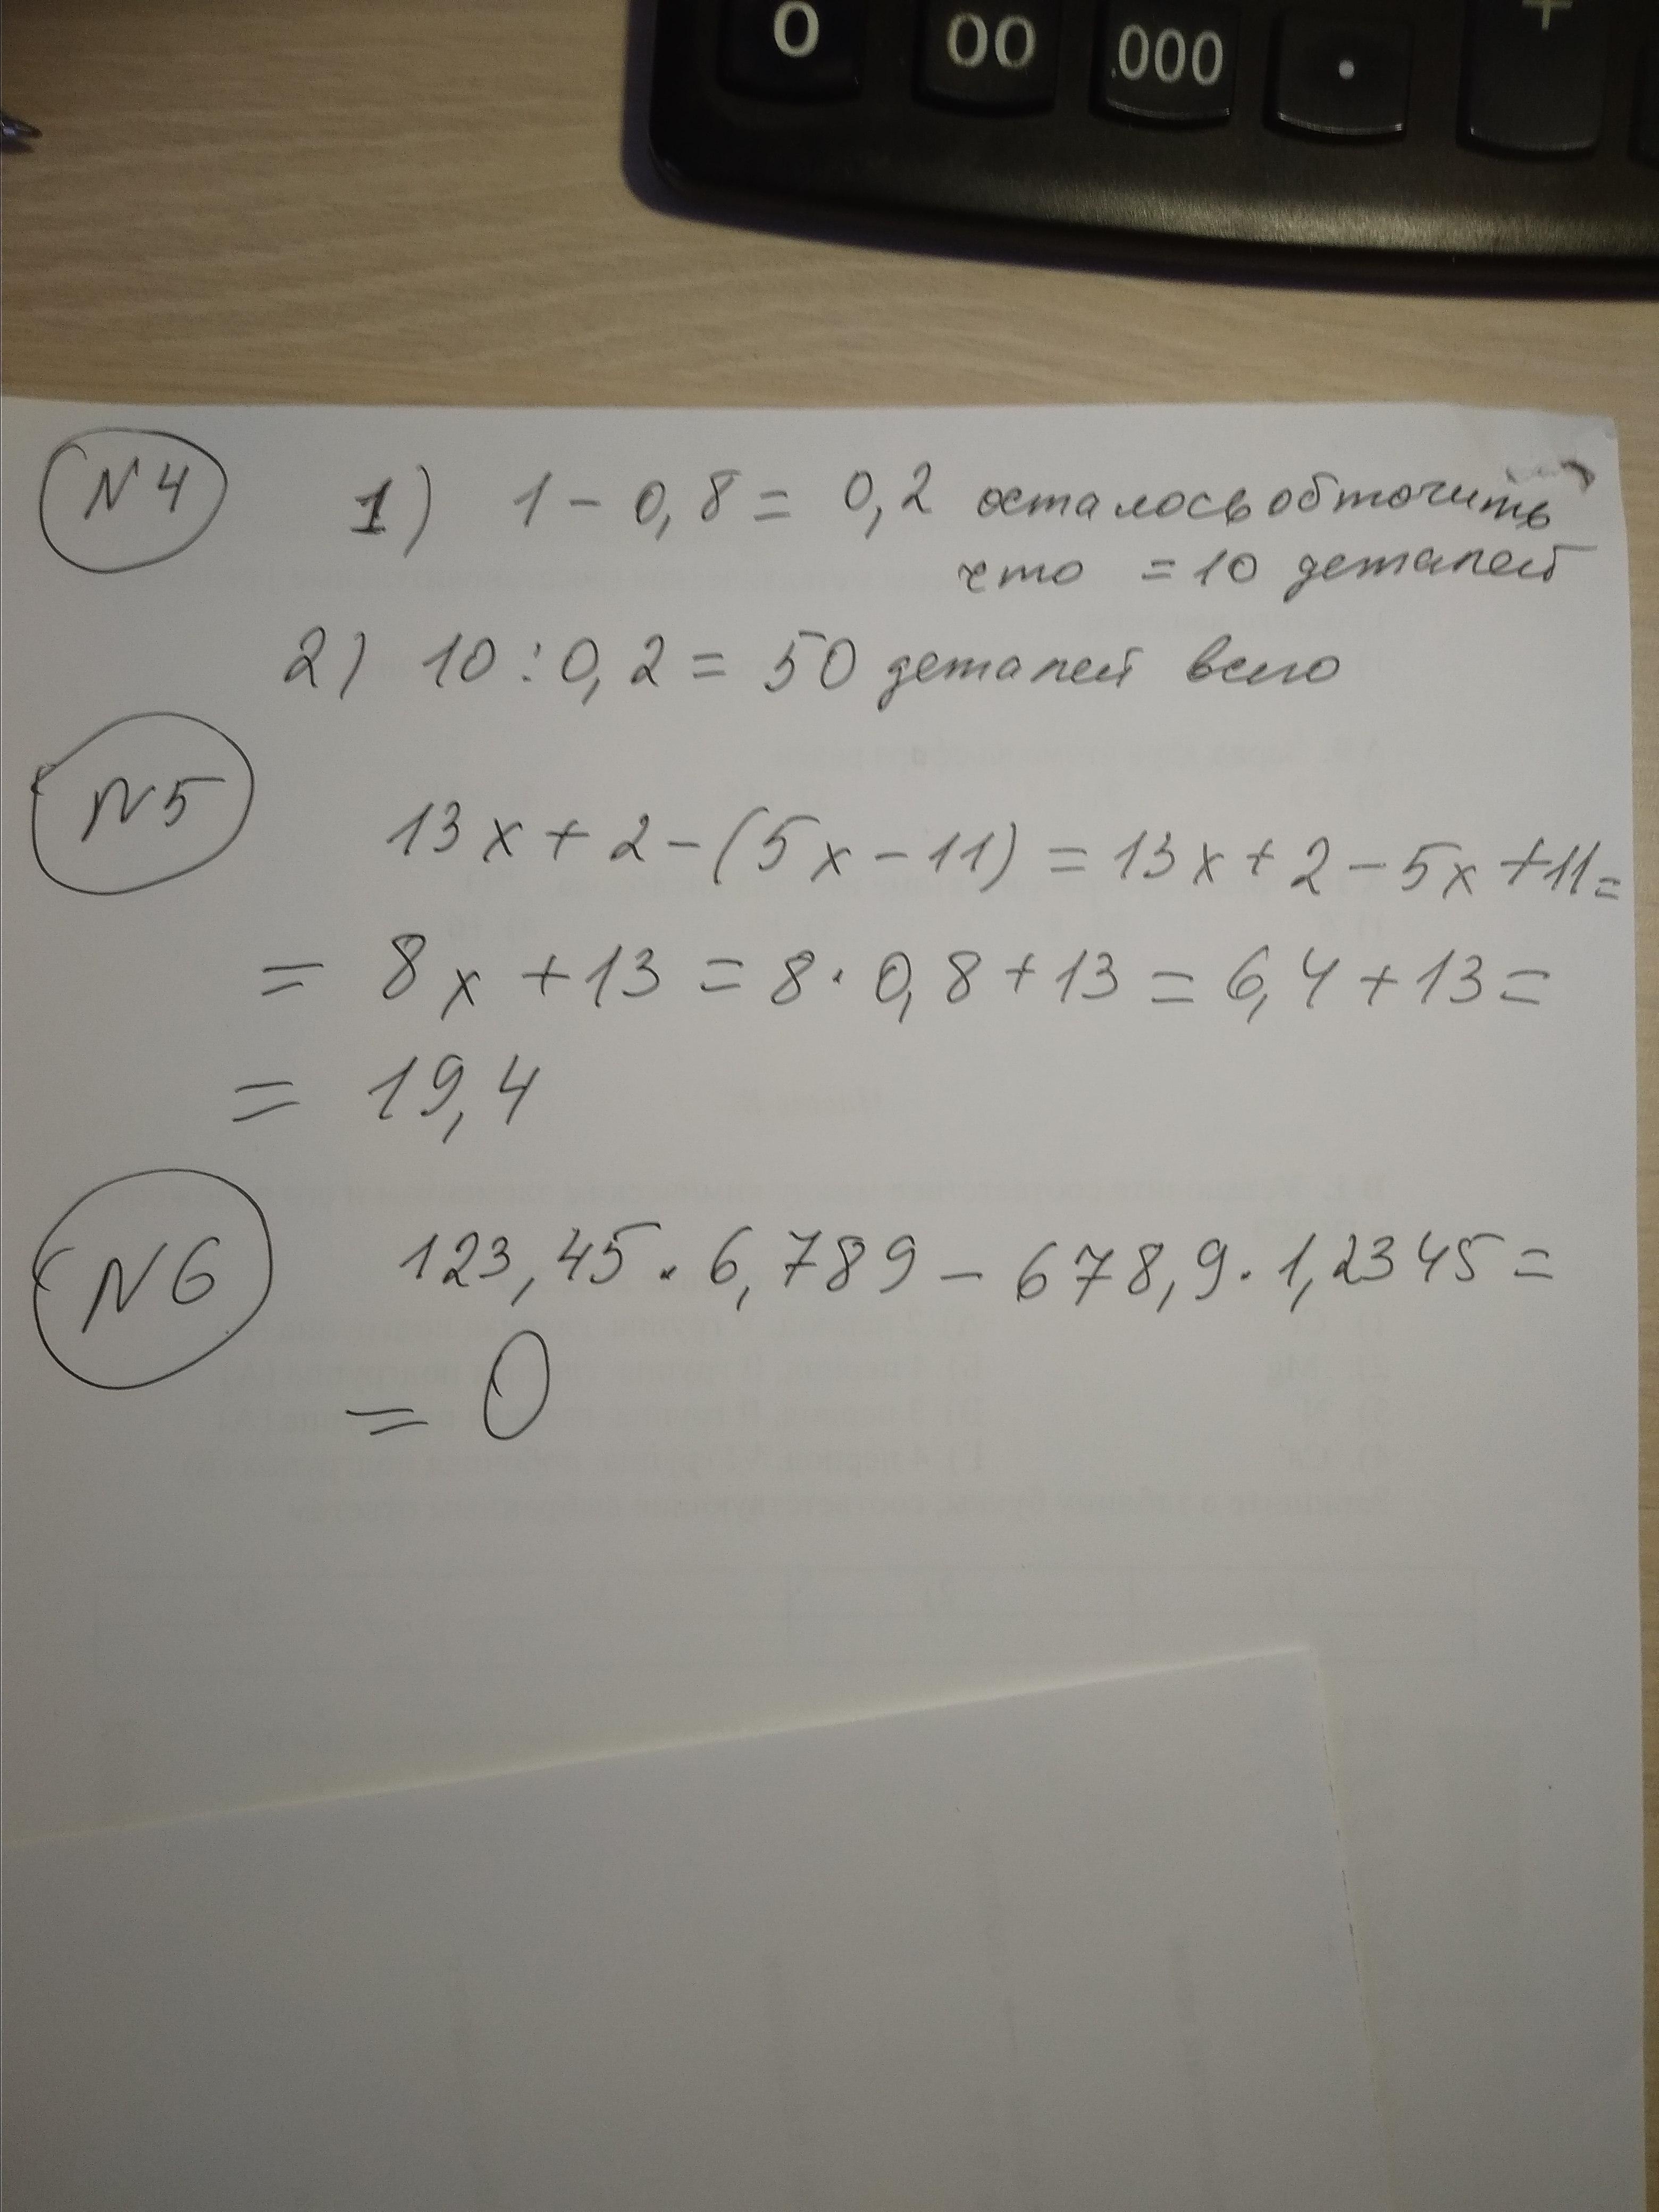 0 00 000 . +
N4 1) 1 - 0,8 = 0,2 осталось обточить
что = 10 деталей
2) 10 : 0,2 = 50 деталей всего
N5
13x + 2 - (5x - 11) = 13x + 2 - 5x + 11 =
= 8x + 13 = 8 · 0,8 + 13 = 6,4 + 13 =
= 19,4
N6 123,45 · 6,789 - 678,9 · 1,2345 =
= 0